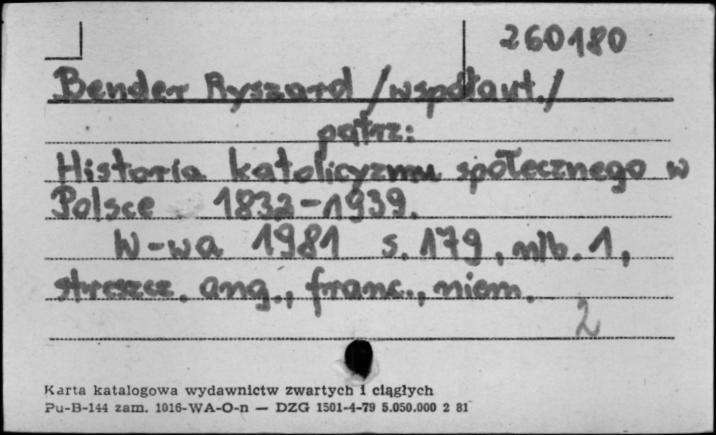 260180
Bender Ryszard /współaut./
patrz:
Historia katolicyzmu społecznego w
Polsce 1832-1939.
W-wa 1981 s. 179, nlb. 1,
streszcz. ang., franc., niem.
2
Karta katalogowa wydawnictw zwartych i ciągłych
Pu-B-144 zam. 1016-WA-O-n — DZG 1501-4-79 5.050.000 2 81